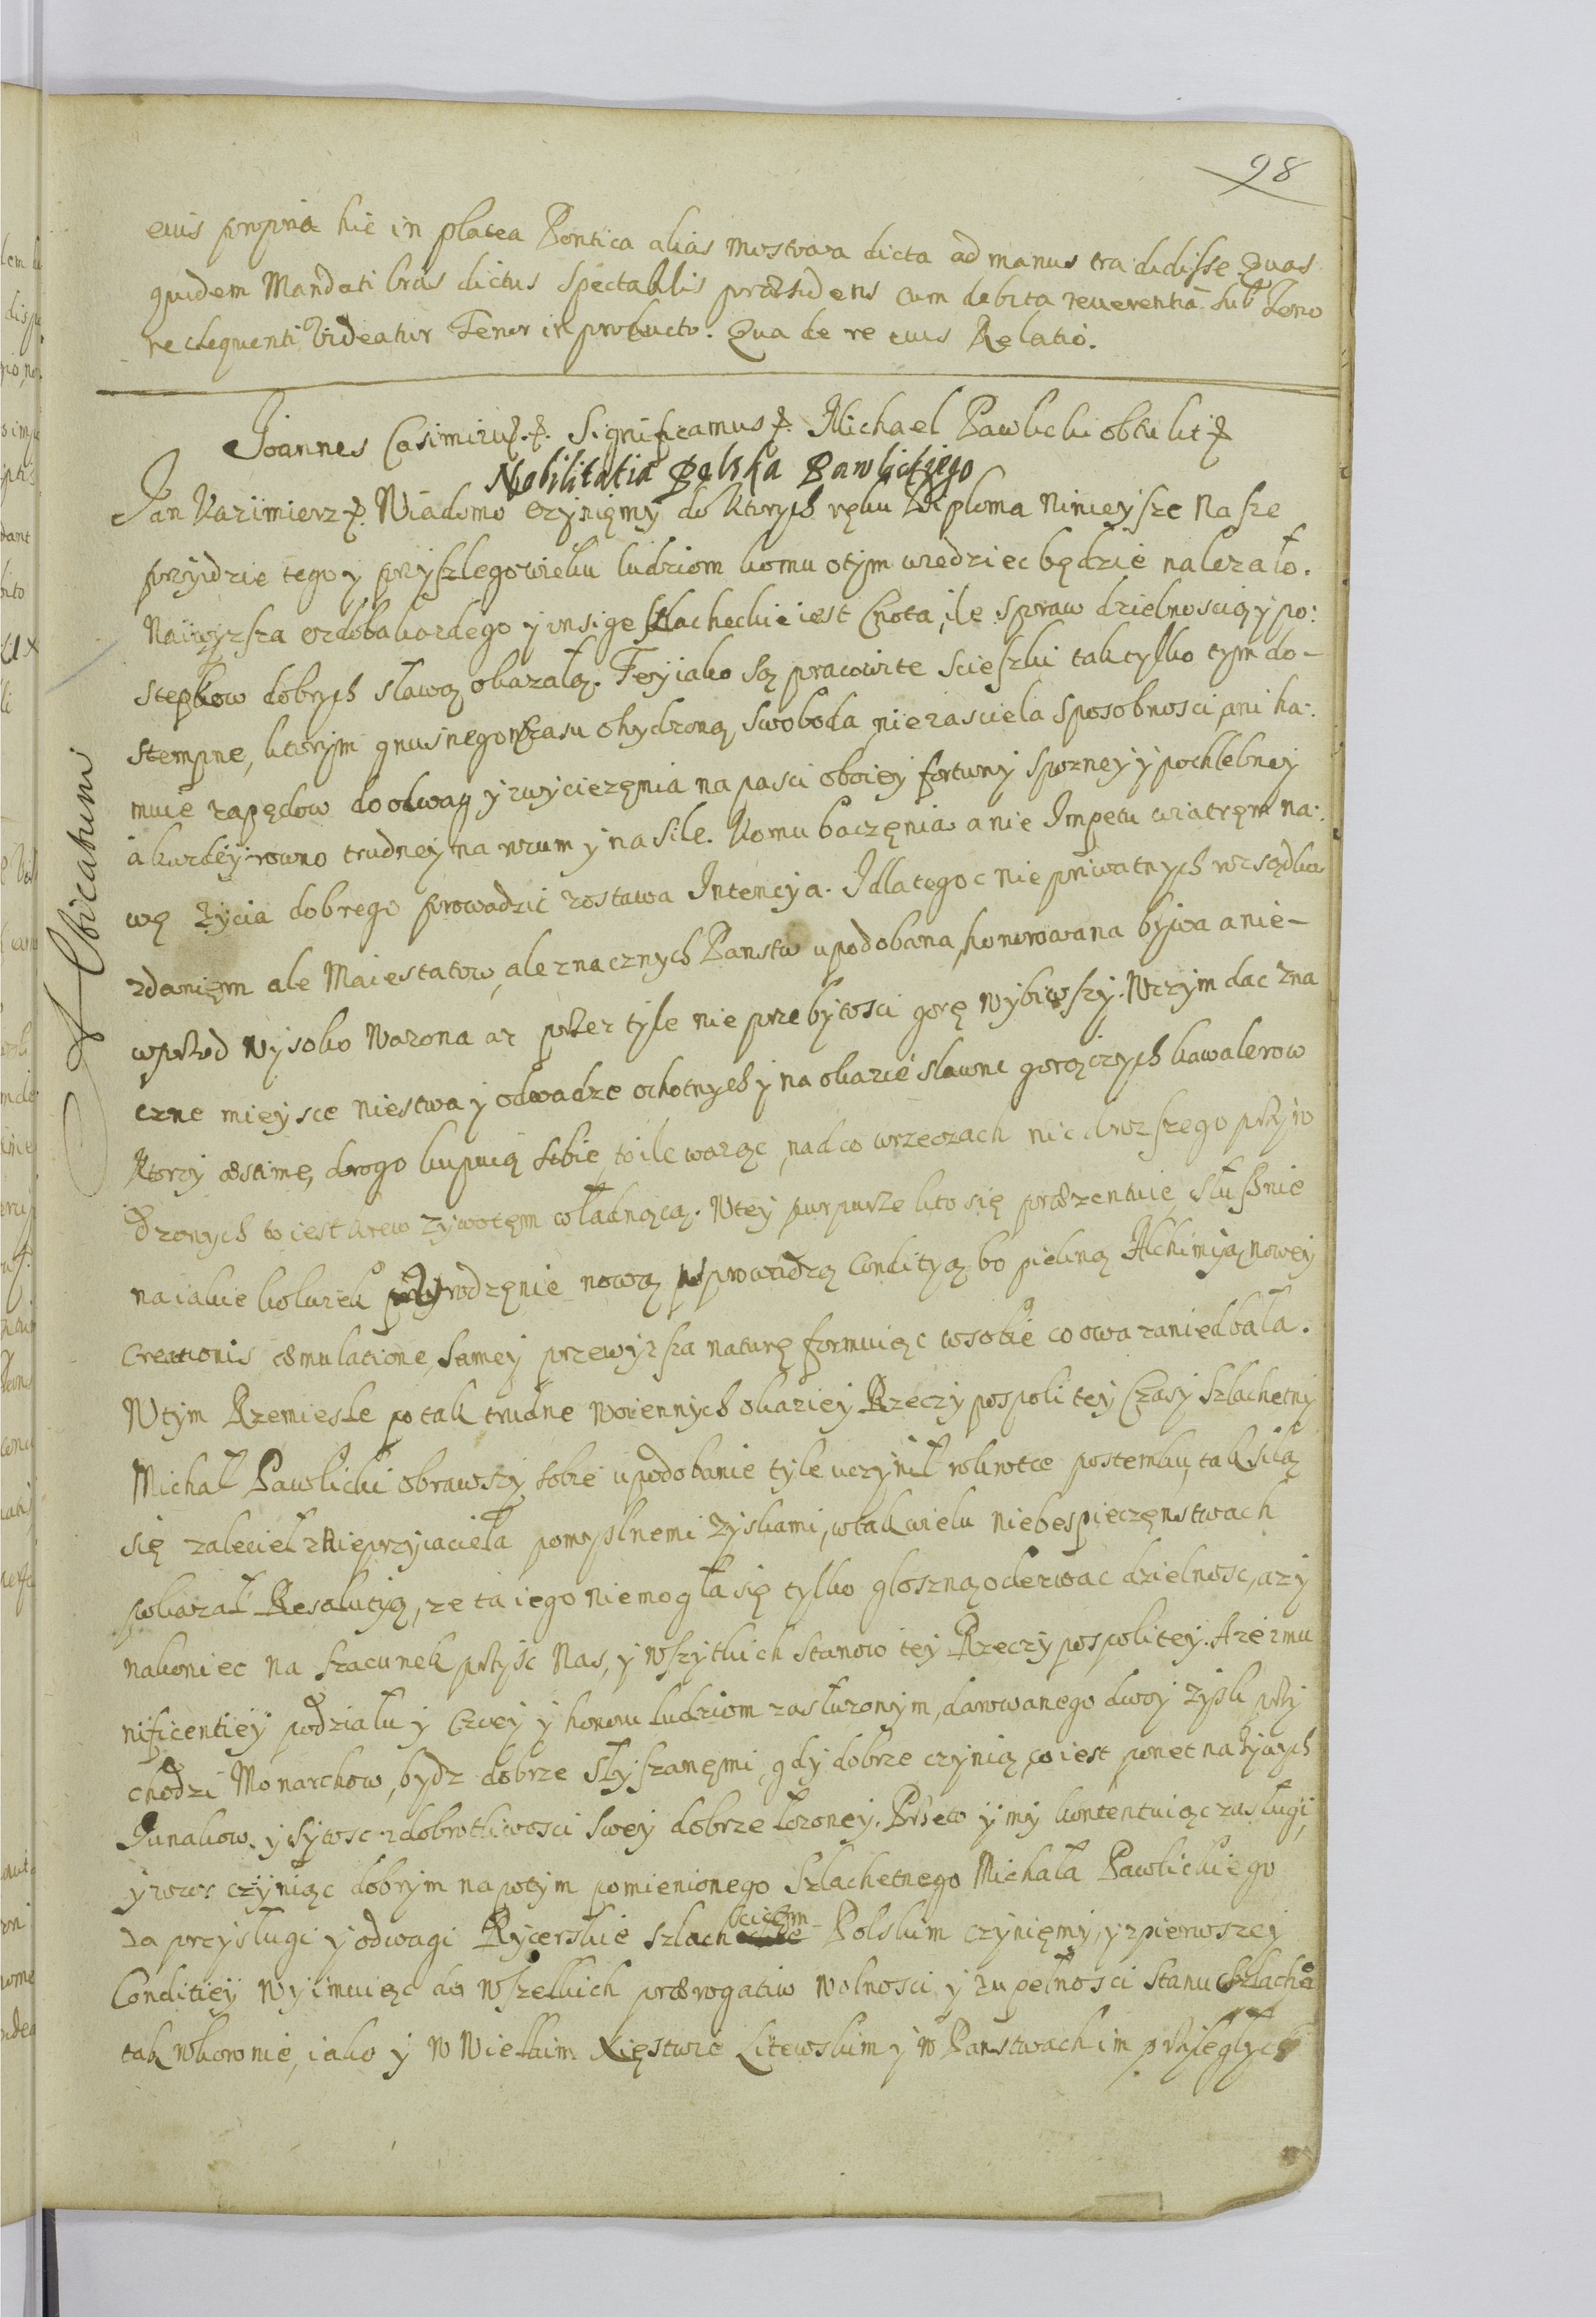 98
eius propria hic in platea Pontica alias mostowa dicta ad manus tradidisse Quas
quidem Mandati Lras dictus Spectabilis praesidens cum debita reuerentia sub Teno
re sequenti Videatur Tenor in producto. Qua de re eius Relatio.
Joannes Casimirus. Significamus. Michael Pawlicki obtulit
Nobilitatia Polska Pawlickiego
Jan Kazimierz. Wiadomo czynięmy do ktorych ręku Diploma Ninieysze Nasze
przyidzie tego y przyszlego wieku ludziom komu otym wiedziec będzie nalezało.
Naiwyzsza ozdoba kazdego y insige Szlacheckie iest Cnota, ile spraw dzielnoscią y po:
stepkow dobrych sławą okazałą. Tey iako są pracowite scieszki tak tylko tym do-
stempne, ktorym gnusnego wczasu ohydzoną swoboda nie zasciela sposobnosci, ani ha:
muie zapędow do odwag y zwyciezęnia napasci oboiey fortuny sporney y pochlebney
á kazdey rowno trudney na rozum y na sile. Komu baczęnia a nie Impetu wiatręm na:
wę Zycia dobrego prowadzić zostawa Intencya. Idlategoc nie priwatnych rozsądku
zdanięm ale Maiestatow, ale znacznych Panstw upodobana, honorowana bywa a nie-
wprzod Wysoko Wazona az przez tyle nieprzebytosci gorę wybiwszy. Wczym dac zna
czne mieysce Męstwa y odwadze ochotnych y na okazie sławne gorączych kawalerow
Ktorzy æstimę, drogo kupuią sobie to ile waząc, nad co wrzeczach nic drozszego przyro
dzonych to iest krew zywotęm władnącą. Wtey purpurze kto się præzentuie, słusznie
na iakie kolwiek przyrodzęnie nową wprowadzą Conditią bo piekną Alchimiią nowey
Creationis æmulatione, Samey przewyzsza naturę formuiąc wsobie co owa zaniedbała.
Wtym Rzemiesle po tak trudne Woiennych okaziey Rzeczypospolitey Czasy Szlachetny
Michał Pawlicki obrawszy sobie upodobanie tyle uczynił wkrotce postemku, tak siłą
się zalecieł z Nieprzyiaciela pomyslnemi Zyskami, w tak wielu niebespieczęnstwach
pokazał Resolutią, ze ta iego nie mogła się tylko glosną oderwac dzielnosc, az y
nakoniec na szacunek przyść Nas, y wszytkich Stanow tey Rzeczypospolitey. A ze z mu
nificentiey podziału y Czcey y honoru ludziom zasłuzonym, darowanego dwoy Zysk przy
chodzi Monarchow, bydz dobrze słyszanęmi, gdy dobrze czynią, co iest ponet na zywych
Junakow y sytosc z dobrotliwosci swey dobrze łozoney. Przeto y my kontentuiąc zasługi,
y wzor czyniąc dobrym napotym pomienionego Szlachetnego Michała Pawlickiego
za przysługi y odwagi Rycerskie szlachcicęm Polskim czynięmy, y z pierwszey
Conditiey Wyimuiąc do Wszelkich prærogatiw Wolnosci y zupełnosci Stanu Szlache
tak Wkoronie, iako y W Wielkim Xięstwie Litewskim y w Panstwach im przyległych